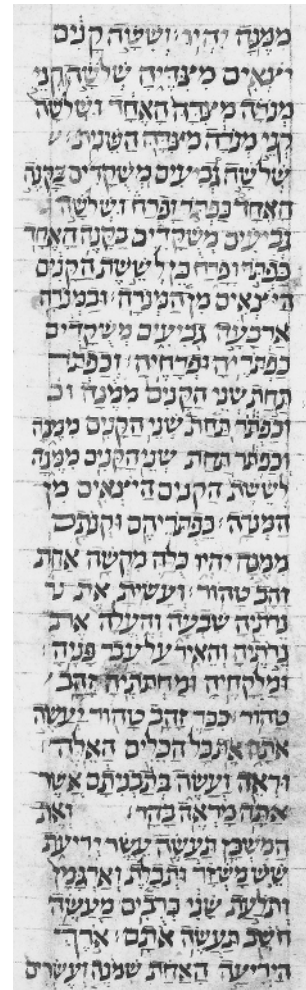 ממנה יהיו וששה קנים
יצאים מצדיה שלשה קני
מנרה מצדה האחד ושלשה
קני מנרה מצדה השנית
שלשה גביעים משקדים בקנה
האחד כפתר ופרח ושלשה
גביעים משקדים בקנה האחד
כפתר ופרח כן לששת הקנים
היצאים מן המנרה ובמנרה
ארבעה גביעים משקדים
כפתריה ופרחיה וכפתר
תחת שני הקנים ממנה וכ
וכפתר תחת שני הקנים ממנה
וכפתר תחת שני הקנים ממנה
לששת הקנים היצאים מן
המנרה כפתריהם וקנתם
ממנה יהיו כלה מקשה אחת
זהב טהור ועשית את נר
נרתיה שבעה והעלה את
נרתיה והאיר על עבר פניה
ומלקחיה ומחתתיה זהב
טהור ככר זהב טהור יעשה
אתה את כל הכלים האלה
וראה ועשה בתבניתם אשר
אתה מראה בהר ואת
המשכן תעשה עשר יריעת
שש משזר ותכלת וארגמן
ותלעת שני כרבים מעשה
חשב תעשה אתם ארך
היריעה האחת שמנה ועשרים